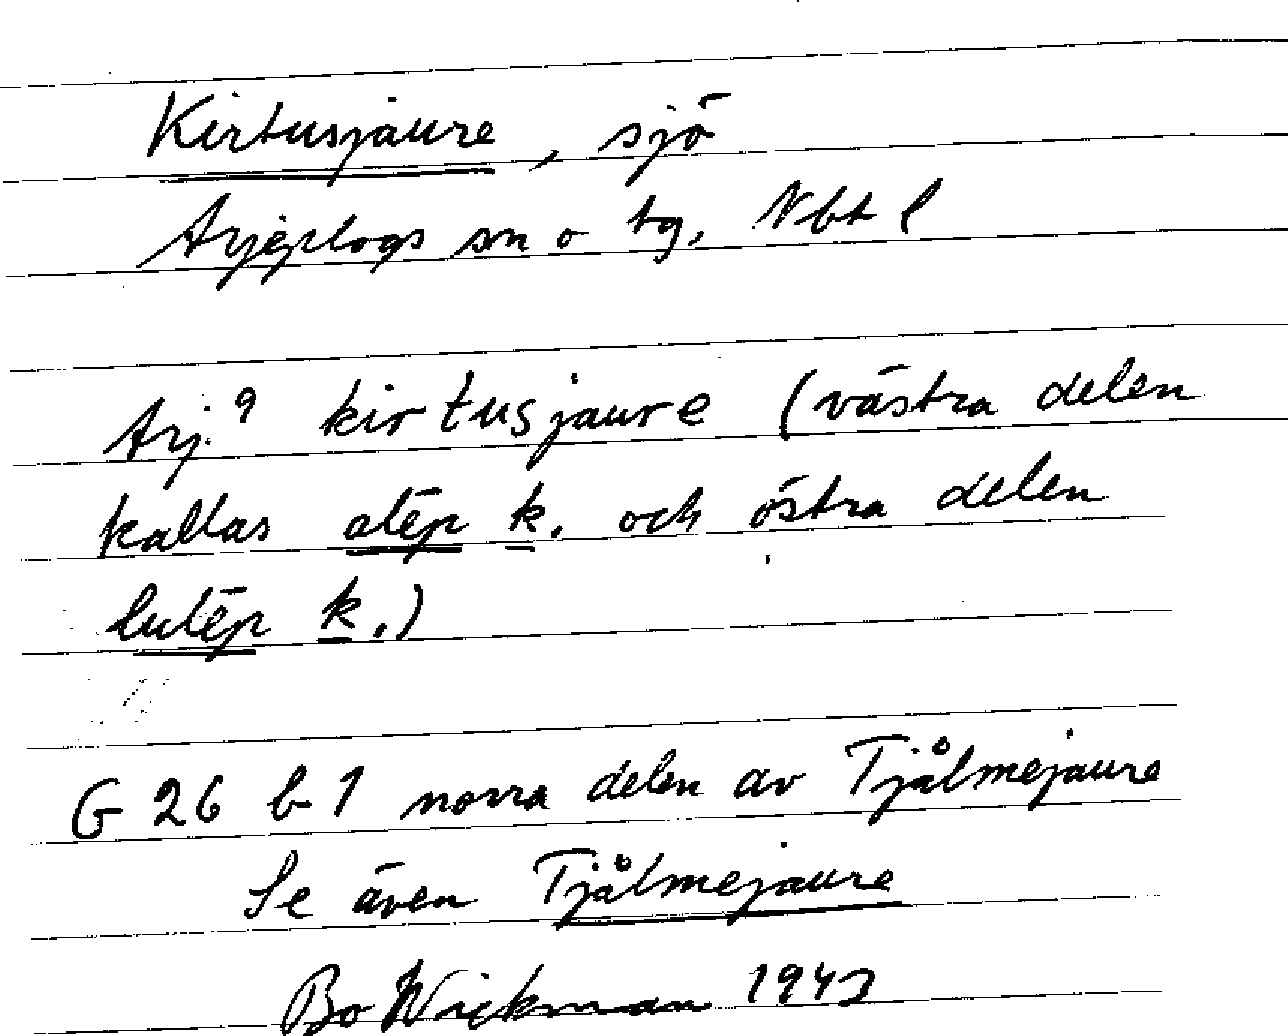 Kirtusjaure, sjö
Arjeplogs sn o tg, Nbt l
Arj.9 kirtusjaure (västra delen
kallas alēp k. och östra delen
lulēp k.)
G 26 b 1 norra delen av Tjålmejaure
Se även Tjålmejaure
Bo Wickman 1943